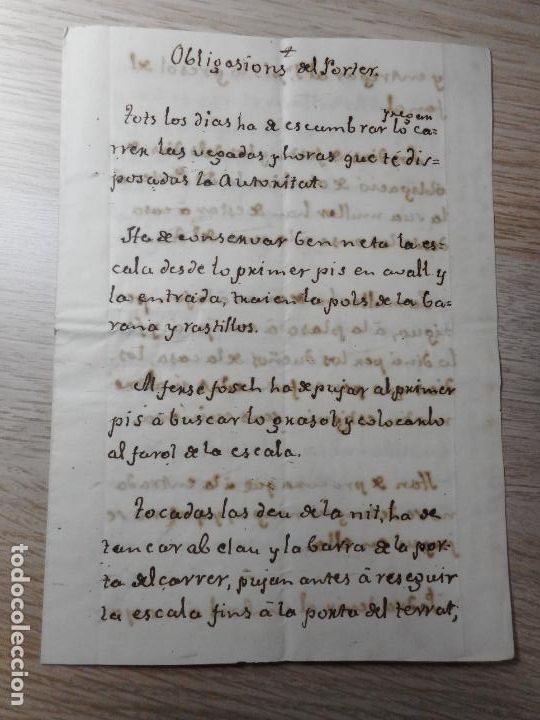 +
Obligasions del Porter.
y regar
Tots los dias ha de escumbrar lo ca-
rrer las vegadas y horas que té dis-
posadas la Autoritat.
Ha de conservar ben neta la es-
cala desde lo primer pis en avall y
la entrada, traien la pols de la ba-
rana y rastillos.
Al ferse fosch ha de pujar al primer
pis á buscar lo grasol y colocarlo
al farol de la escala.
Tocadas las deu de la nit, ha de
tancar ab clau y la barra de la por-
ta del carrer, pujan antes á reseguir
la escala fins á la porta del terrat,
todocoleccion.net